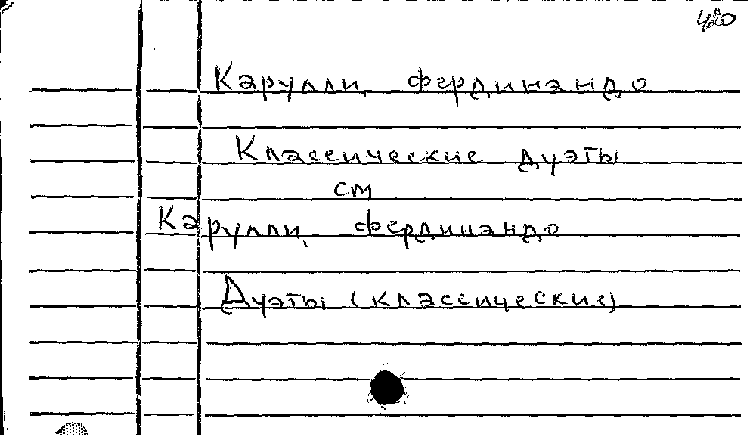 Карулли, Фердинандо
Классические дуэты
см
Карулли, Фердинандо
Дуэты (классические)